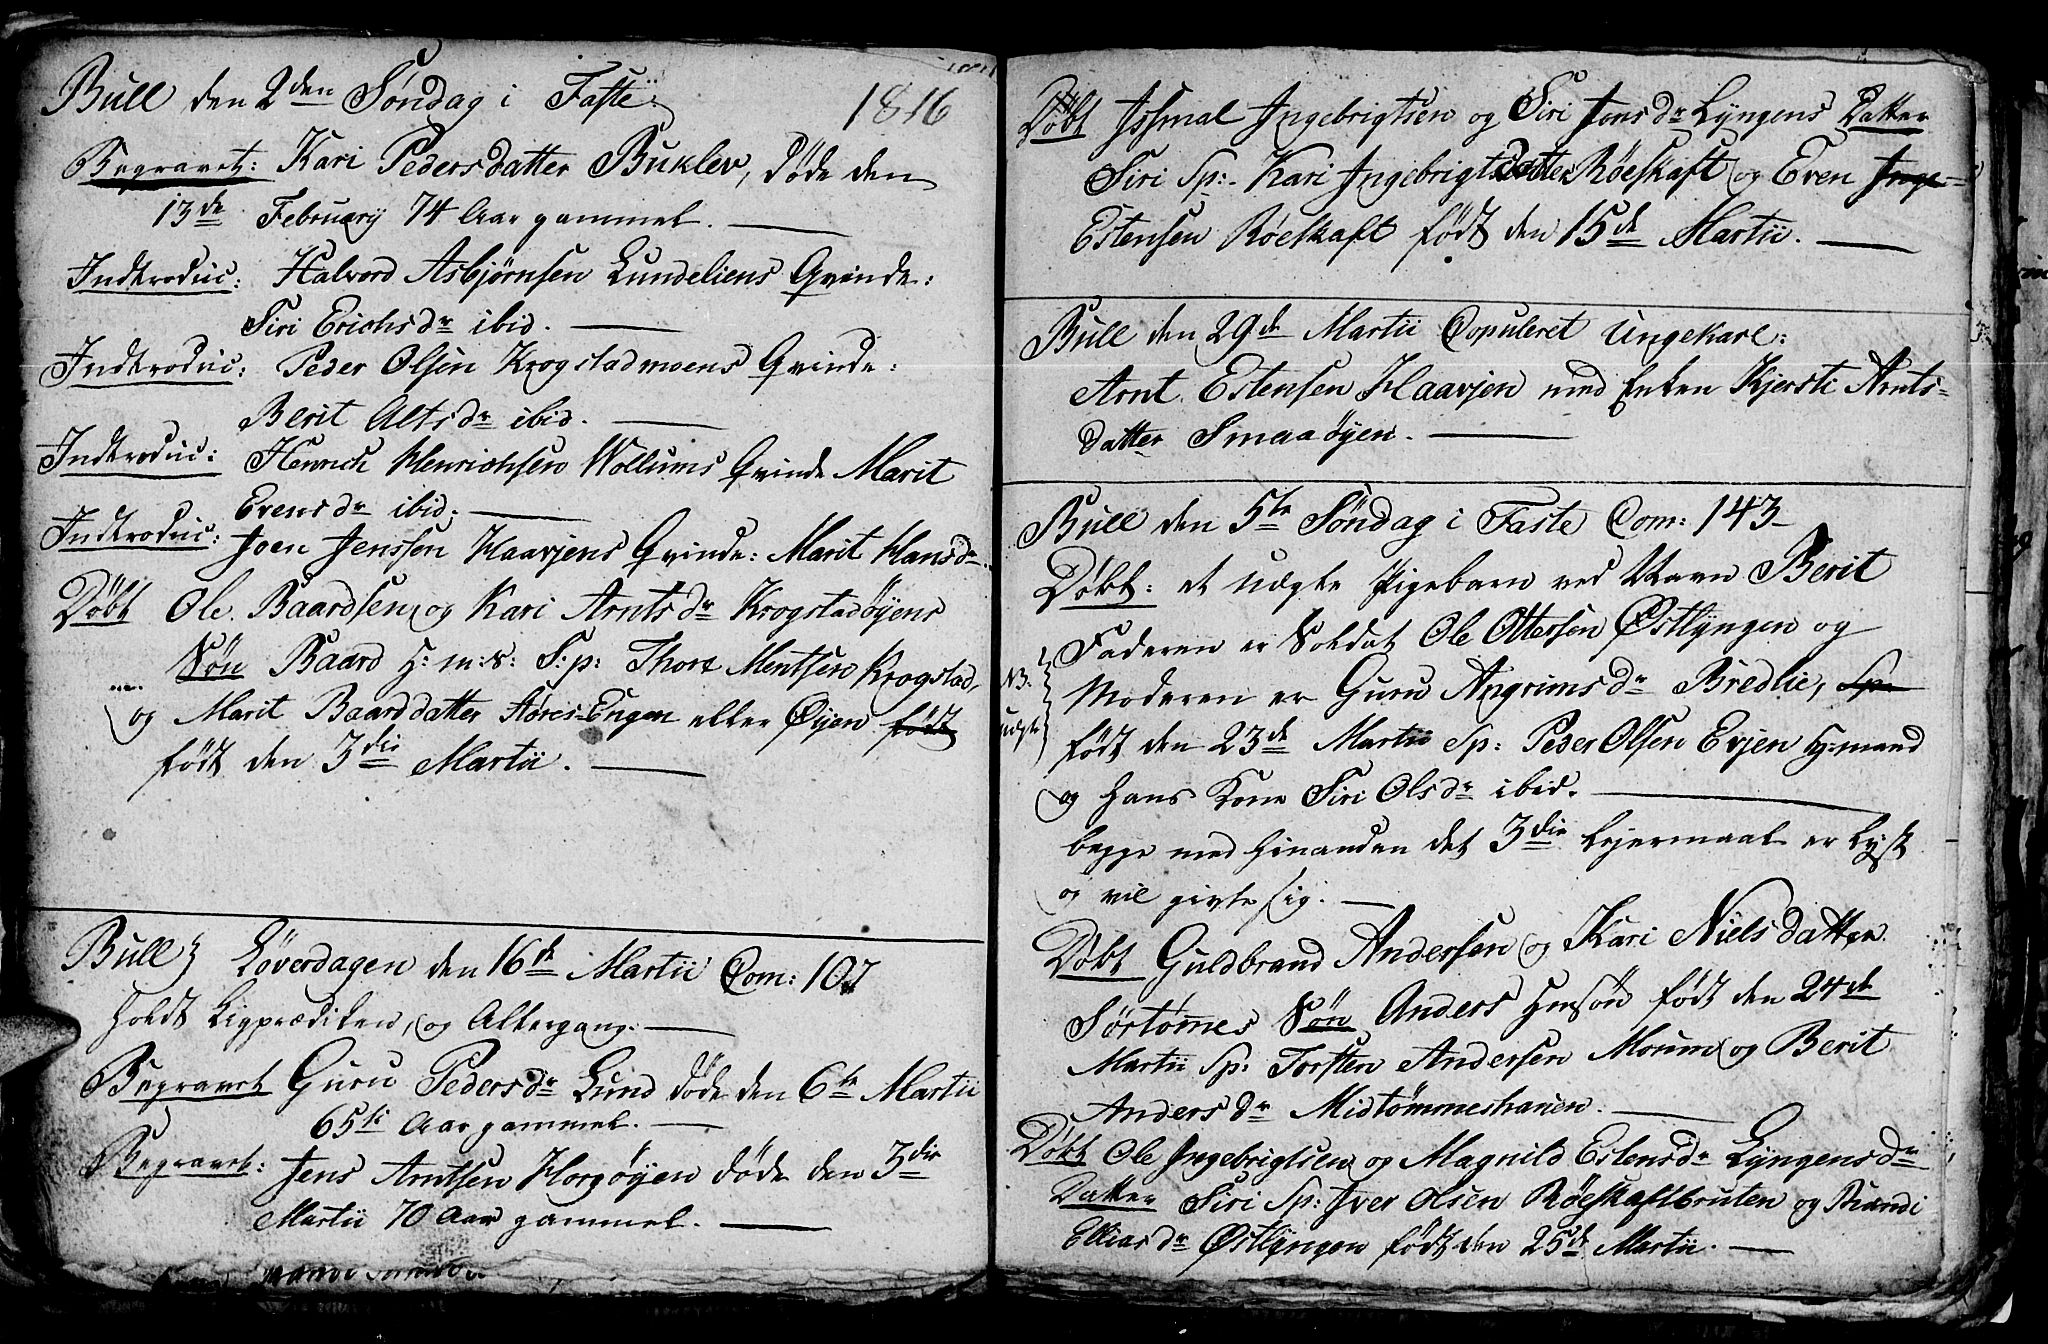 Bull den 2den Søndag i Faste 1816
Begravet: Kari Pedersdatter Buklev, døde den
13de February 74 Aar gammel.
Indtroduc: Halvord Asbjørnsen Lundeliens Qvinde:
Siri Erichsdr ibid.
Indtroduc: Peder Olsen Krogstadmoens Qvinde:
Berit Altsdr ibid.
Indtroduc: Henrich Henrichsen Wollums Qvinde Marit
Evensdr ibid.
Indtroduc: Joen Jenssen Haavjens Qvinde: Marit Hansdr
Døbt Ole Baardsen og Kari Arntsdr Krogstadøyens
Søn Baard H:m:s: S:p: Thore Mentsen Krogstad,
og Marit Baarddatter Støres-Engen eller Øyen født
født den 3die Martii.
Bull Løverdagen den 16de Martii Com: 107
holdt Ligprædiken, og Altergang.
Begravet Guru Pedersdr Lund døde den 6te Martii
65ti Aar gammel.
Begravet: Jens Arntsen Horgøyen døde den 3die
Martii 70 Aar gammel.
Døbt Issmal Ingebrigtsen og Siri Jonsdr Lyngens Datter
Siri Sp: Kari Ingebrigtsdatter Røeskaft og Even Inge-
Estensen Røeskaft født den 15de Martii.
Bull den 29de Martii Copuleret Ungekarl:
Arnt Estensen Haavjen med Enken Kjersti Arnts-
datter Smaaøyen.
Bull den 5te Søndag i Faste Com: 143
Døbt: et uægte Pigebarn ved Navn Berit
Faderen er Soldat Ole Ottersen Østlyngen og
NB. Moderen er Guru Angrimsdr Bredlie, Sp:
uægte født den 23de Martii Sp: Peder Olsen Evjen H:mand
og hans Kone Siri Olsdr ibid.
begge med hinanden det 3die Lejermaal er Lyst
og vil givte sig.
Døbt Guldbrand Andersen og Kari Nielsdatter
Sørtømes Søn Anders Hmsøn født den 24de
Martii Sp: Torsten Andersen Moum og Berit
Andersdr Midtømmeshanen.
Døbt Ole Ingebrigtsen og Magnild Estensdr Lyngensdr
Datter Siri Sp: Iver Olsen Røeskaftbruten og Brandi
Elliasdr Østlyngen født den 25de Martii.